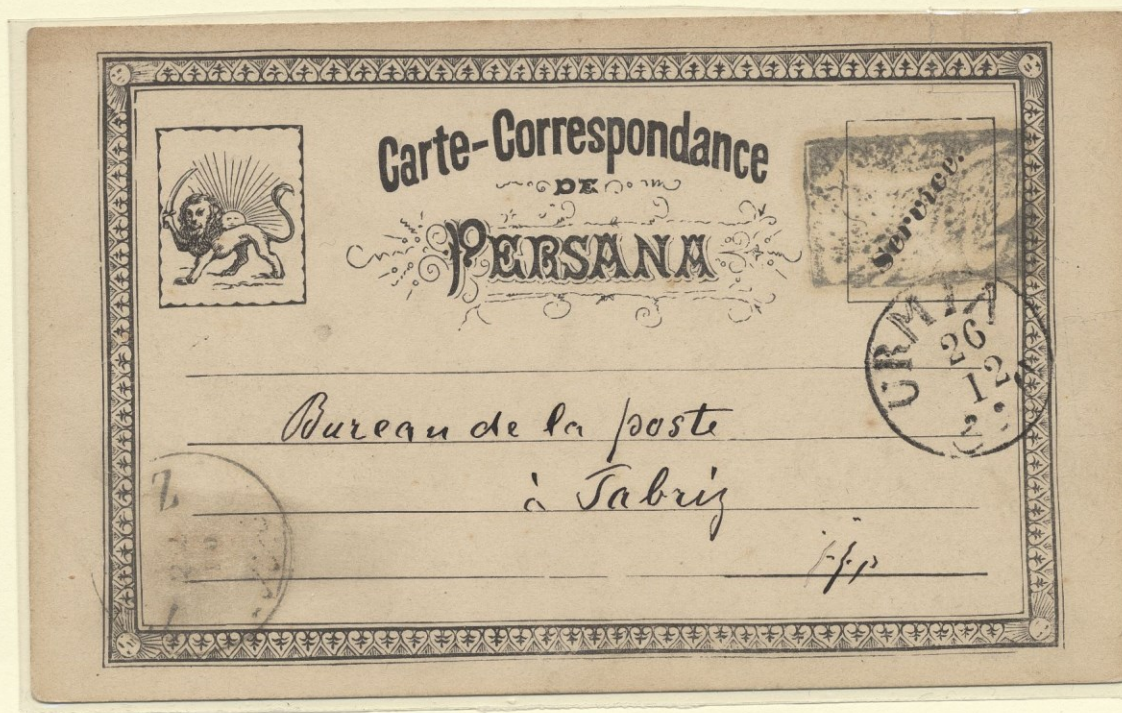 Carte-Correspondance
DE
PERSANA
Service.
URMIA
26
12
2
Bureau de la poste
à Tabriz
Z